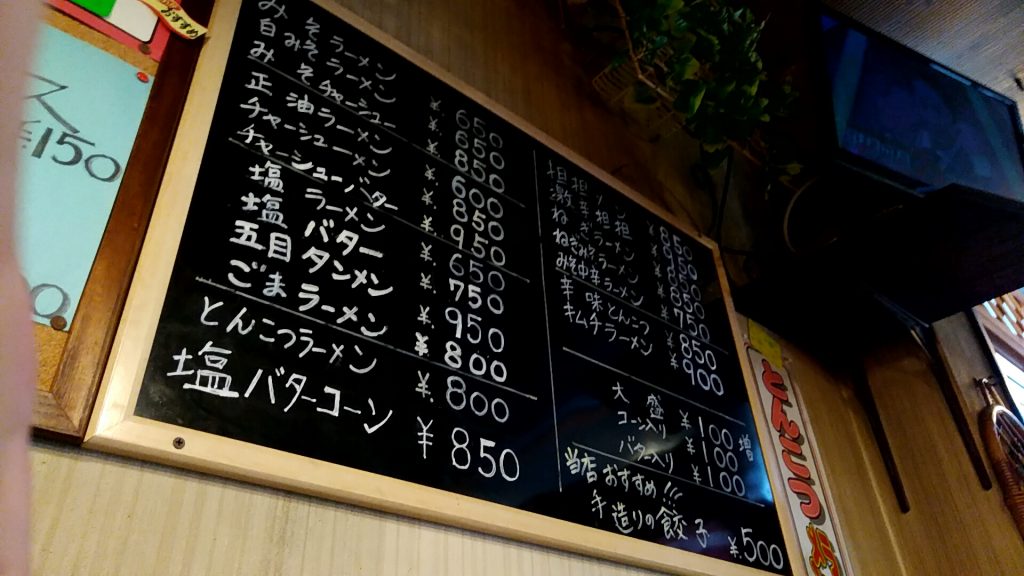 みそラーメン ¥650
白みそラーメン ¥650
みそチャーシュー ¥850
正油ラーメン ¥600
チャーシューメン ¥850
チャーシューバター ¥950
塩ラーメン ¥650
塩バター ¥750
五目タンメン ¥950
ごまラーメン ¥800
とんこつラーメン ¥800
塩バターコーン ¥850
担担メン ¥850
激辛担担
ねぎラーメン
ねぎみそラーメン
みそ中辛ラーメン ¥750
辛味とんこつ ¥850
キムチラーメン ¥900
大盛 ¥100増
コーン入り ¥100
バター入り ¥100
当店おすすめ!!!
手造りの餃子 ¥500
ス
¥150
とんこつ
おすすめ